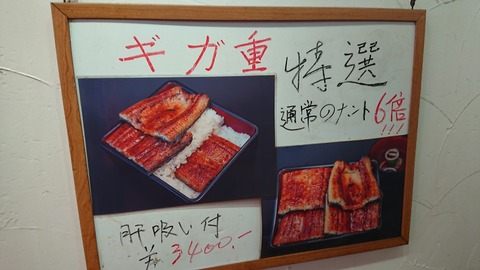 ギガ重 特選
通常のナント6倍!!!
肝吸い付
¥3400.-